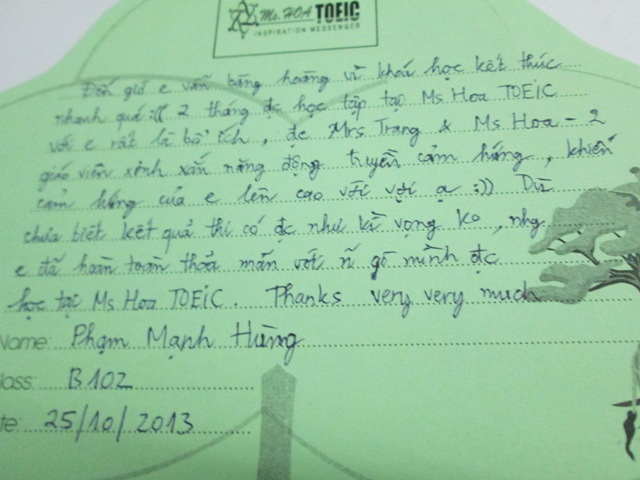 Ms. HOA TOEIC
INSPIRATION MESSENGER
Đến giờ e vẫn bàng hoàng vì khoá học kết thúc
nhanh quá :(( 2 tháng đc học tập tại Ms Hoa TOEIC
với e rất là bổ ích, đc Mrs Trang & Ms Hoa - 2
giáo viên xinh xắn năng động truyền cảm hứng, khiến
cảm hứng của e lên cao vời vợi ạ :)) Dù
chưa biết kết quả thi có đc như kì vọng ko, nhg
e đã hoàn toàn thỏa mãn với n gì mình đc
học tại Ms Hoa TOEIC. Thanks very very much
Name: Phạm Mạnh Hùng
lass: B102
te: 25/10/2013